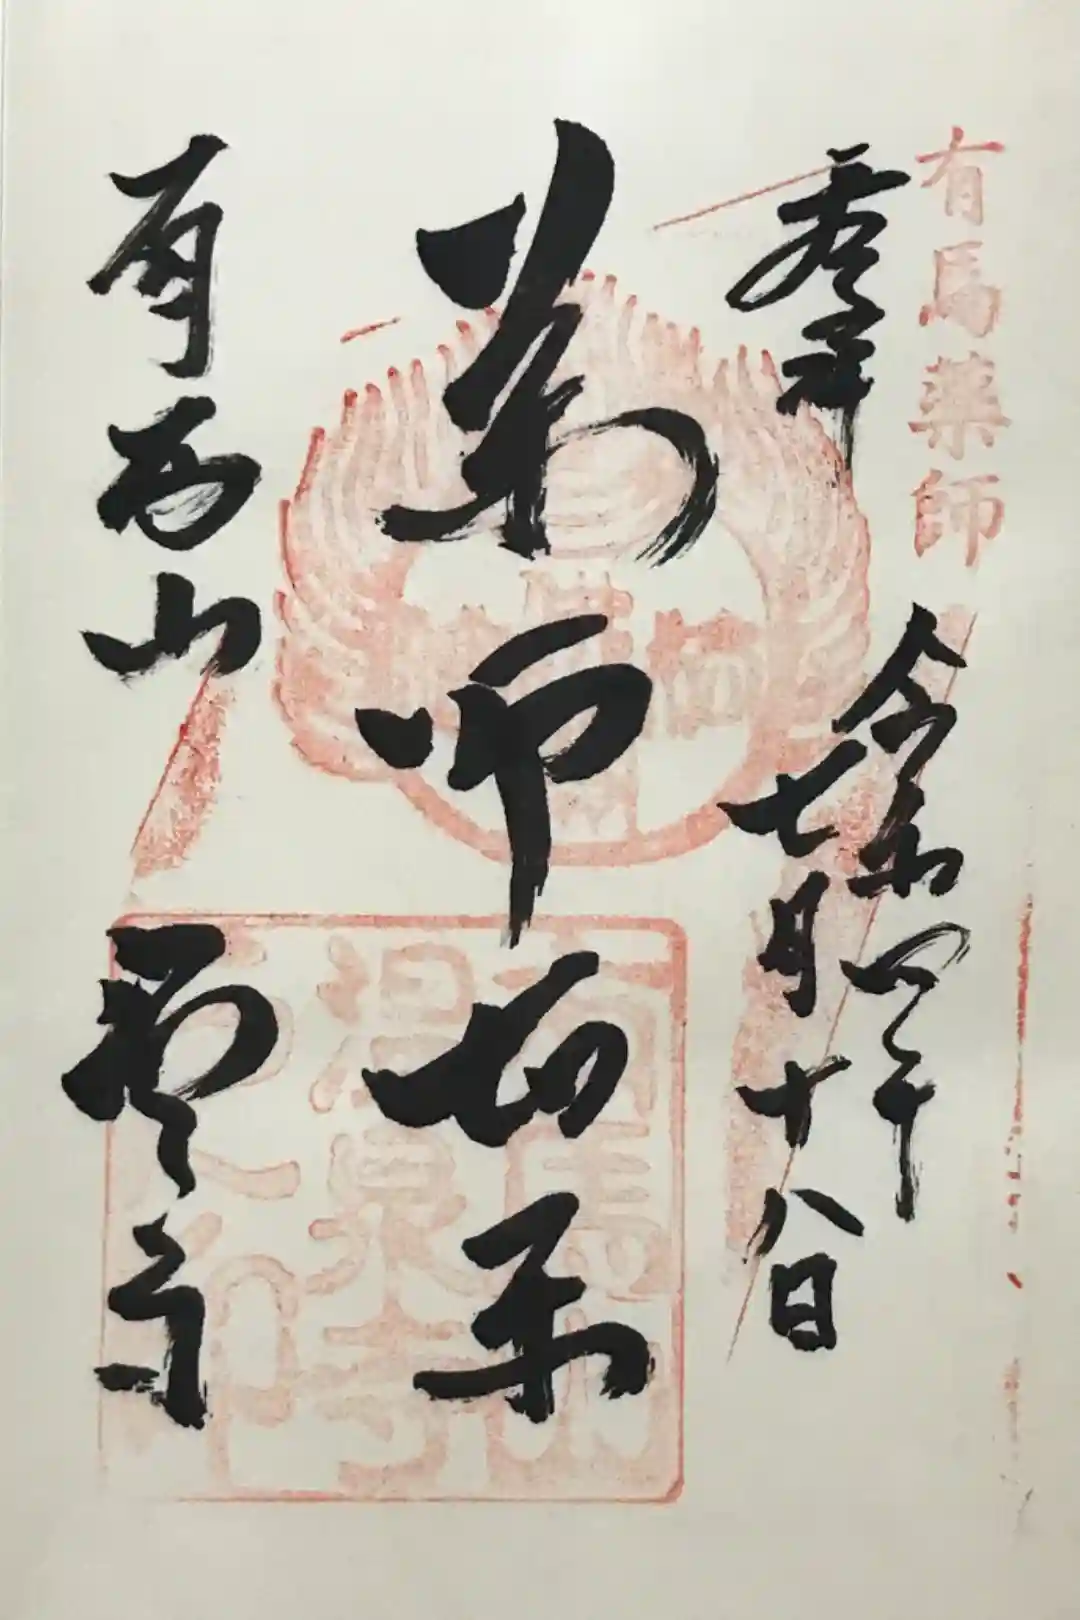 有馬薬師
奉拝
令和四年
七月十八日
薬師如来
有馬山
温泉寺
有馬山
温泉寺